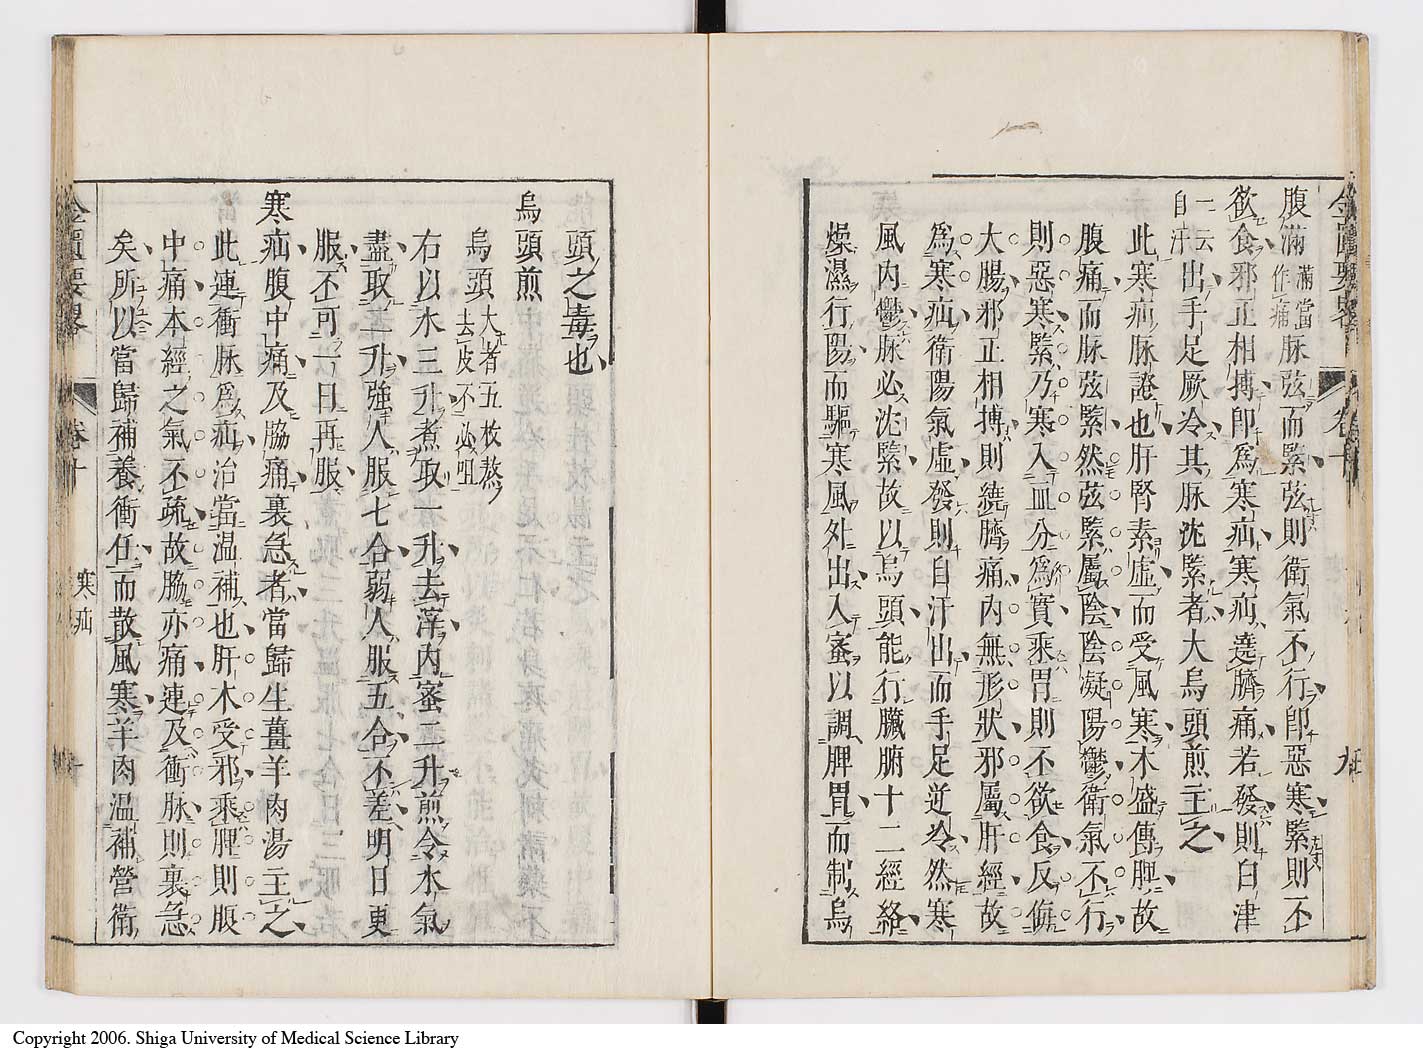 腹滿滿當作痛脉弦而緊弦則衛氣不行卽惡寒緊則不
欲食邪正相搏卽爲寒疝寒疝遶臍痛若發則白津
一云自汗出手足厥冷其脉沈緊者大烏頭煎主之
此寒疝脉證也肝腎素虛而受風寒木盛傳脾故
腹痛而脉弦緊然弦緊屬陰陰凝陽鬱衛氣不行
則惡寒緊乃寒入血分爲實乘胃則不欲食反侮
大腸邪正相搏則繞臍痛內無形狀邪屬肝經故
爲寒疝衛陽氣虛發則自汗出而手足逆冷然寒
風內鬱脉必沈緊故以烏頭能行臟腑十二經絡
燥濕行陽而驅寒風外出入蜜以調脾胃而制烏
金匱要畧 卷十 九
頭之毒也
烏頭煎
烏頭大者五枚熬去皮不必咀
右以水三升煮取一升去滓內蜜二升煎令水氣
盡取二升強人服七合弱人服五合不差明日更
服不可一日再服
寒疝腹中痛及脇痛裏急者當歸生薑羊肉湯主之
此連衝脉爲疝治當温補也肝木受邪乘脾則腹
中痛本經之氣不疏故脇亦痛連及衝脉則裏急
矣所以當歸補養衝任而散風寒羊肉温補營衛
金匱要畧 卷十 寒疝 十
Copyright 2006. Shiga University of Medical Science Library